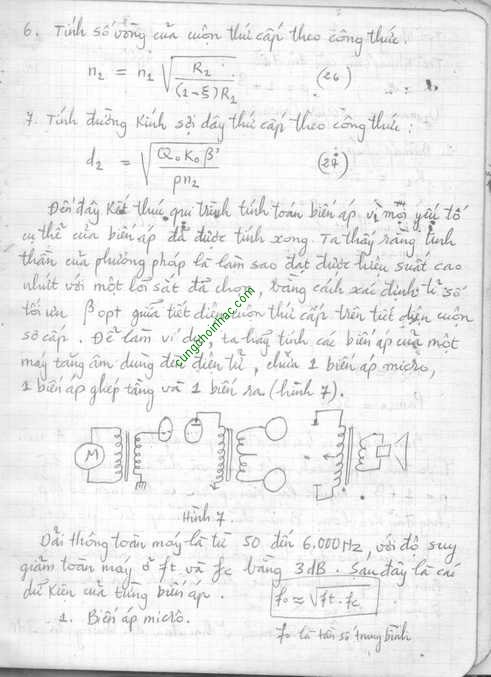 6. Tính số vòng của cuộn thứ cấp theo công thức.
n₂ = n₁ √(R₂ / (1-ξ)R₂) (26)
7. Tính đường kính sợi dây thứ cấp theo công thức :
d₂ = √(Q₀K₀β / ρn₂) (27)
Đến đây kết thúc quá trình tính toán biến áp vì mọi yếu tố
cụ thể của biến áp đã được tính xong. Ta thấy rằng tinh
thần của phương pháp là làm sao đạt được hiệu suất cao
nhất với một lõi sắt đã chọn, bằng cách xác định tỉ số
tối ưu βopt giữa tiết diện cuộn thứ cấp trên tiết diện cuộn
sơ cấp. Để làm ví dụ, ta hãy tính các biến áp của một
máy tăng âm dùng đèn điện tử, chứa 1 biến áp micrô,
1 biến áp ghép tầng và 1 biến ra (hình 7).
cungchoinhac.com
M
Hình 7.
Dải thông toàn máy là từ 50 đến 6.000Hz, với độ suy
giảm toàn máy ở ft và fc bằng 3dB. Sau đây là các
dữ kiện của từng biến áp.
f₀ ≈ √ft.fc
1. Biến áp micro.
f₀ là tần số trung bình